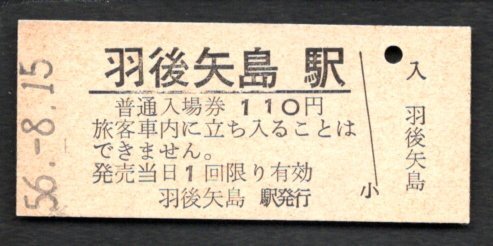 56.-8.15
羽後矢島 駅
普通入場券 110円
旅客車内に立ち入ることは
できません。
発売当日1回限り有効
羽後矢島 駅発行
小
入 羽後矢島